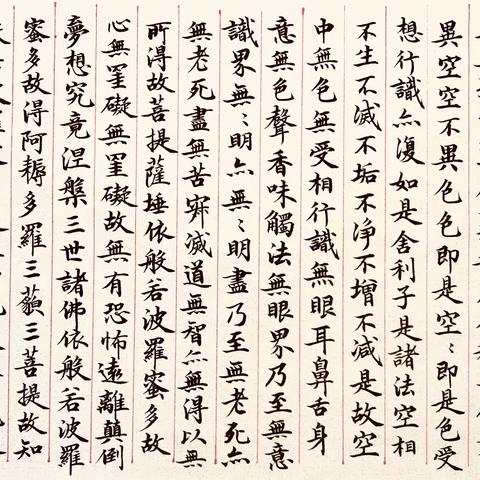 異空空不異色色即是空〻即是色受
想行識亦復如是舍利子是諸法空相
不生不滅不垢不淨不增不減是故空
中無色無受相行識無眼耳鼻舌身
意無色聲香味觸法無眼界乃至無意
識界無〻明亦無〻明盡乃至無老死亦
無老死盡無苦寂滅道無智亦無得以無
所得故菩提薩埵依般若波羅蜜多故
心無罣礙無罣礙故無有恐怖遠離顛倒
夢想究竟涅槃三世諸佛依般若波羅
蜜多故得阿耨多羅三藐三菩提故知